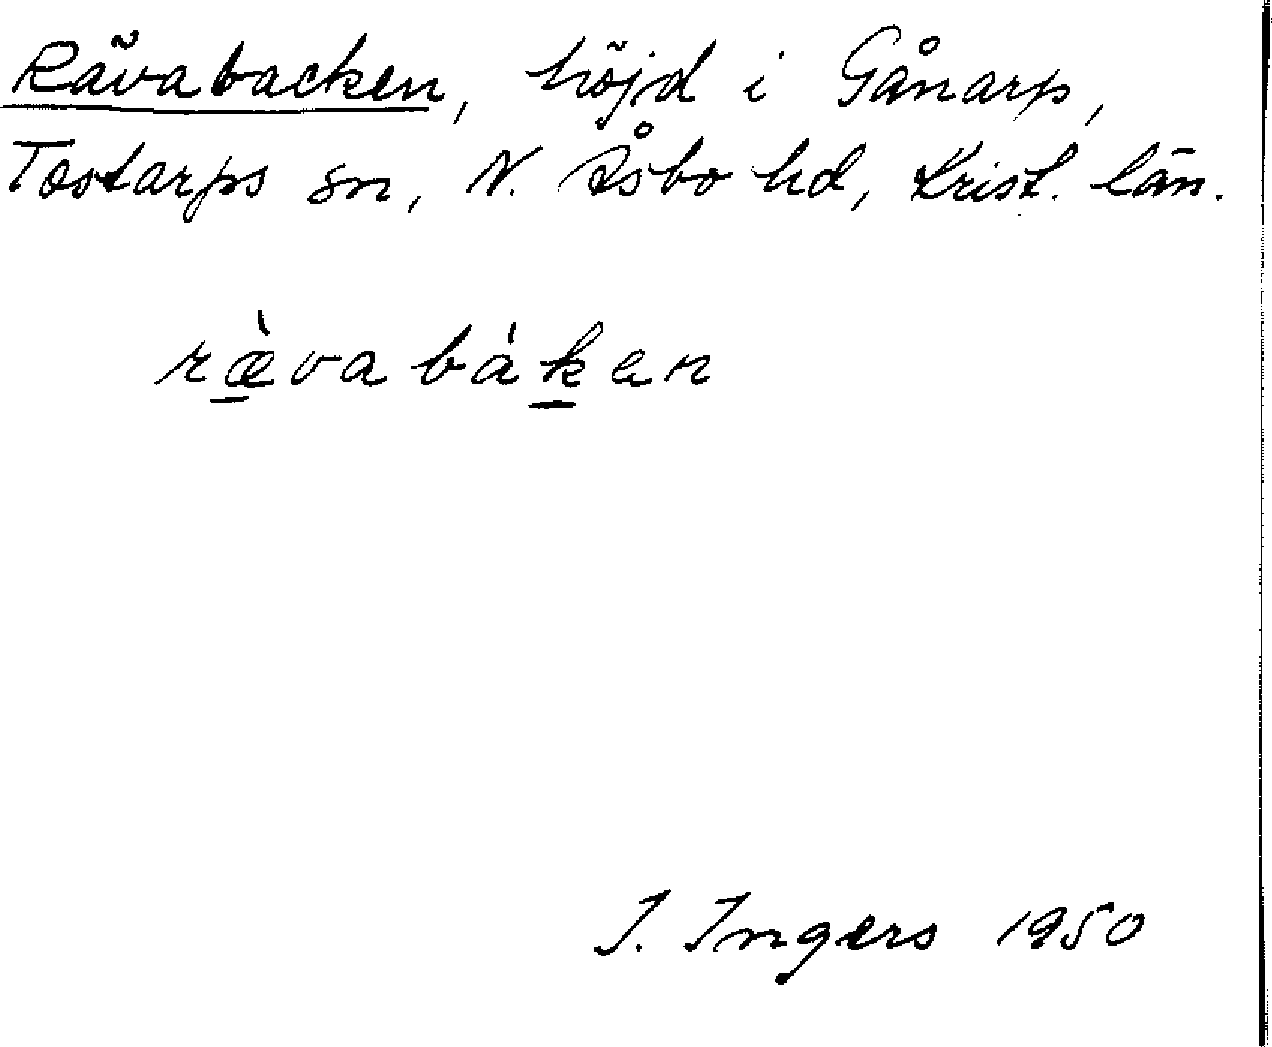 Rävabacken, höjd i Gånarp,
Tostarps sn, N. Åsbo hd, Krist. län.
ræ̱̀vabáḵen
I. Ingers 1950